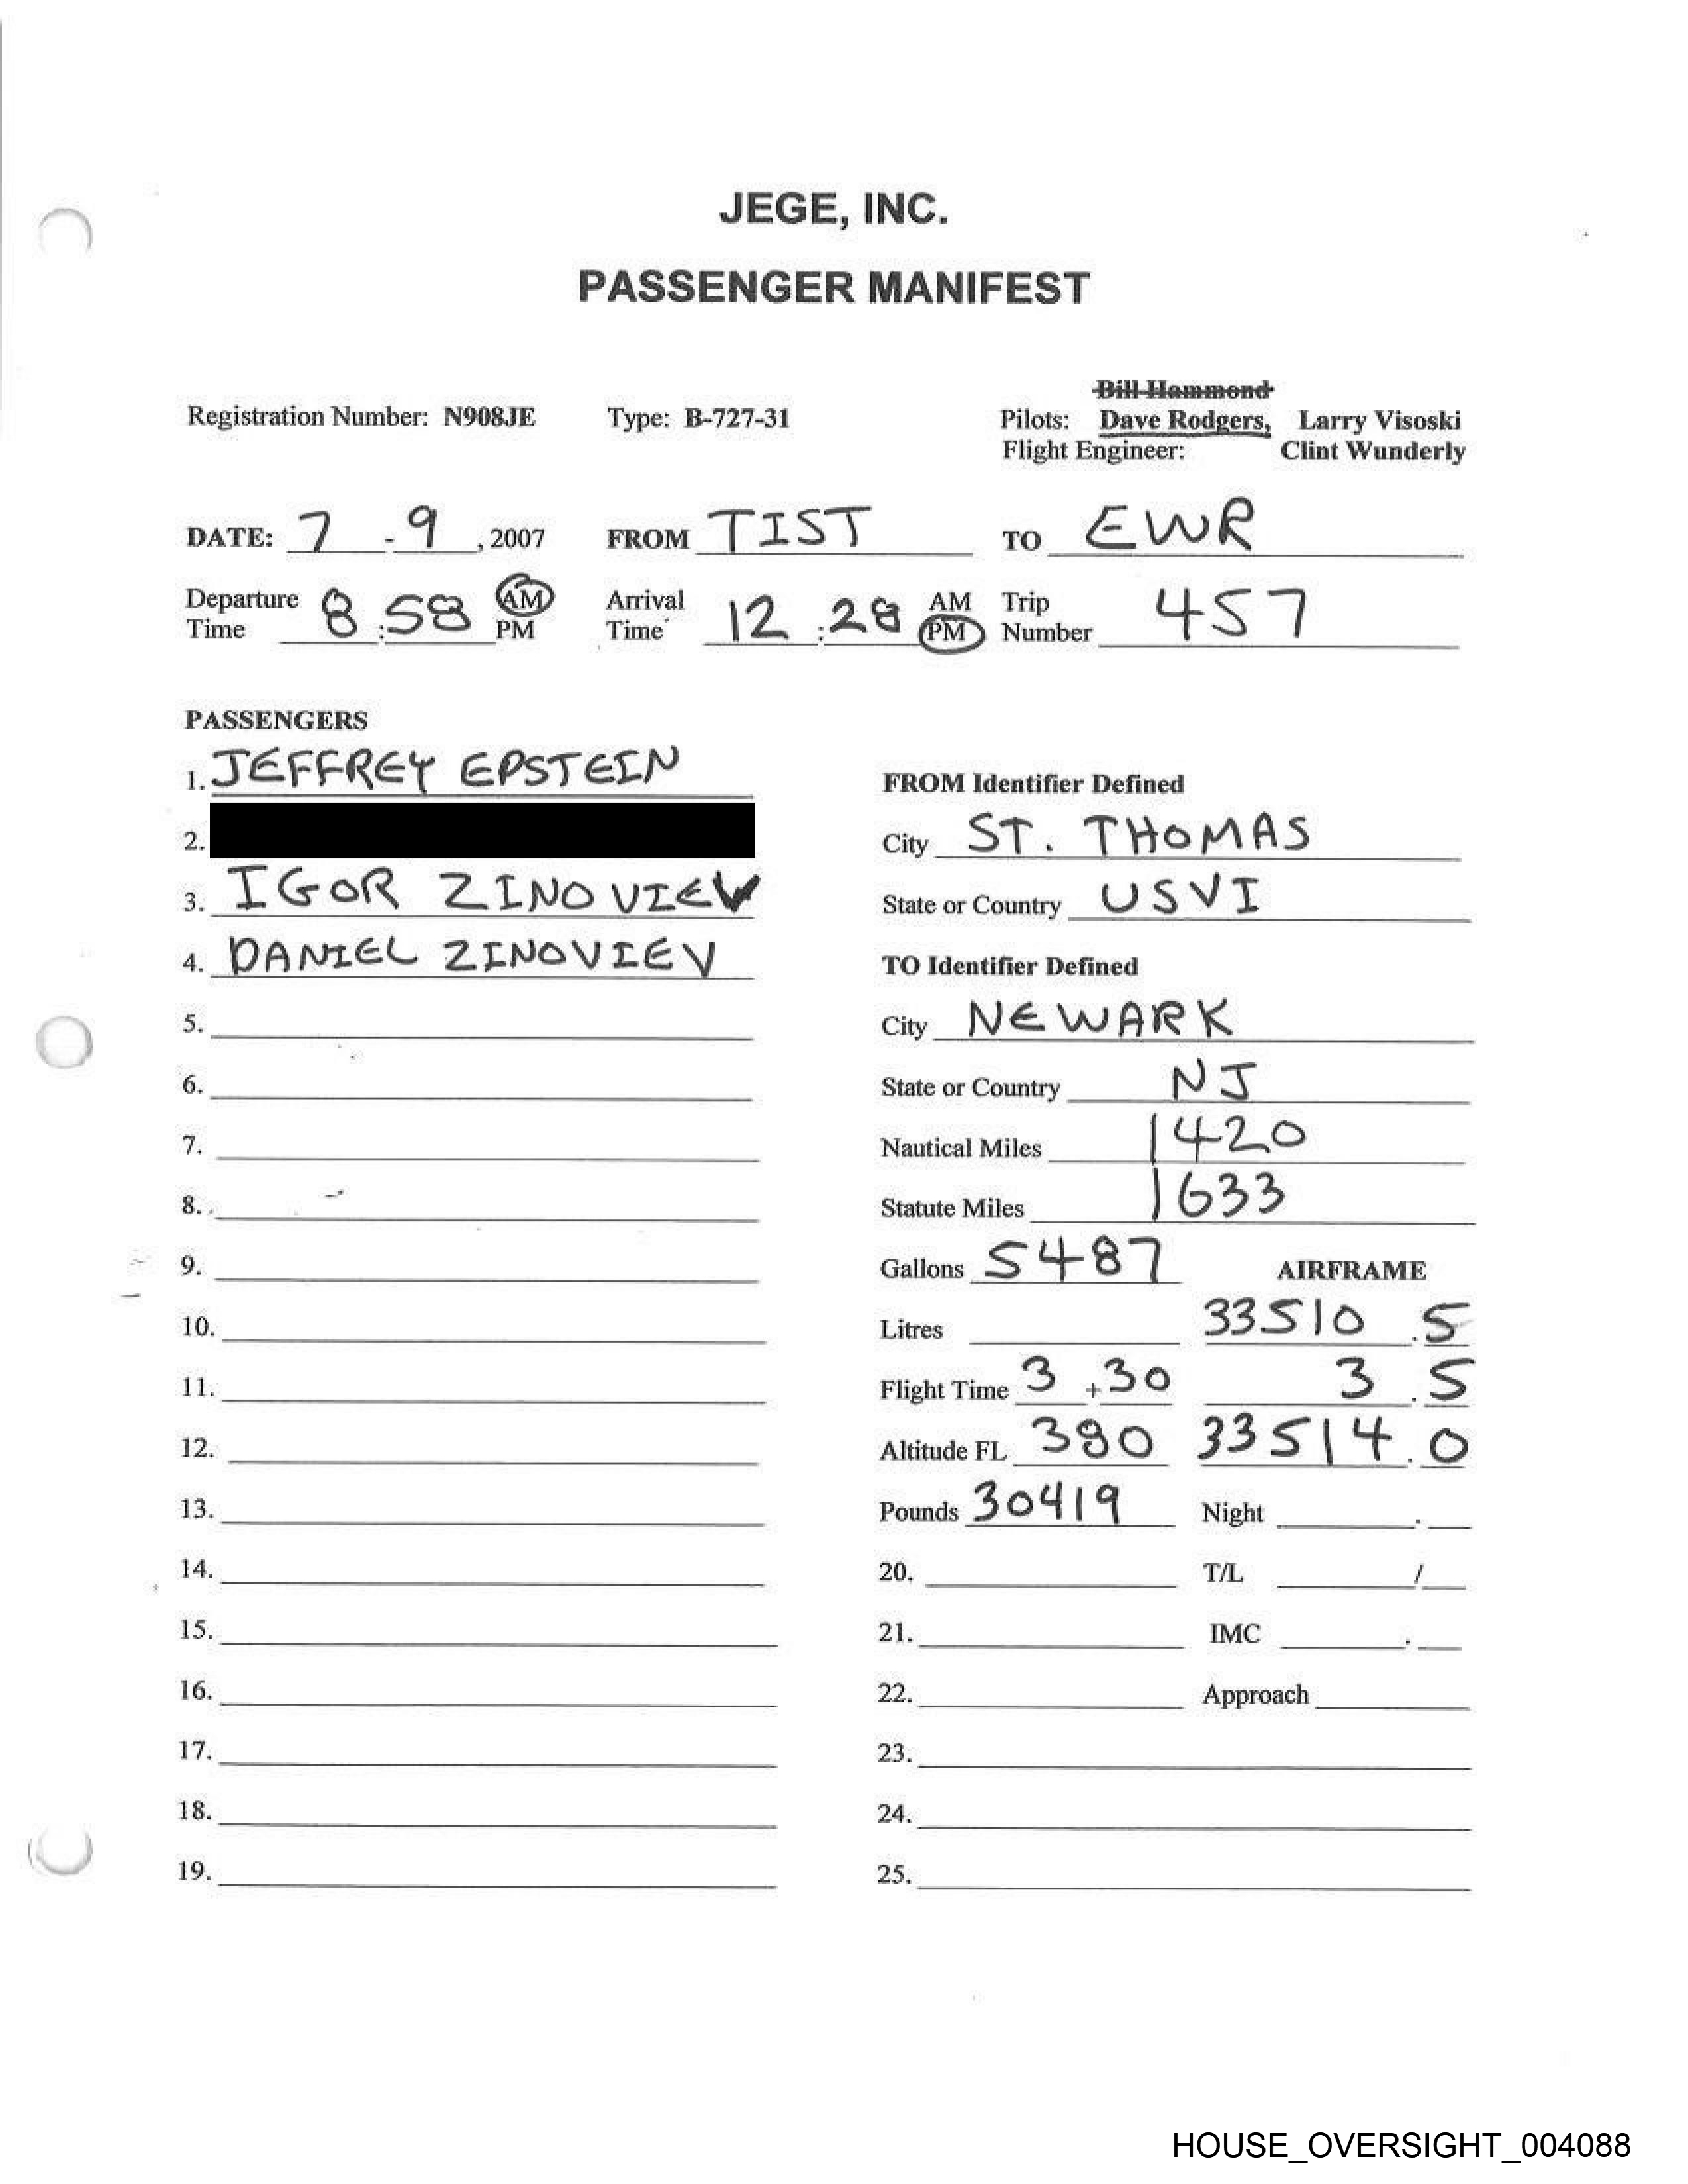 JEGE, INC.
PASSENGER MANIFEST
Bill Hammond
Registration Number: N908JE Type: B-727-31 Pilots: Dave Rodgers, Larry Visoski
Flight Engineer: Clint Wunderly
DATE: 7 - 9 , 2007 FROM TIST TO EWR
Departure Time 8:58 AM PM Arrival Time 12:28 AM PM Trip Number 457
PASSENGERS
1. JEFFREY EPSTEIN
2.
3. IGOR ZINOVIEV
4. DANIEL ZINOVIEV
5.
6.
7.
8.
9.
10.
11.
12.
13.
14.
15.
16.
17.
18.
19.
FROM Identifier Defined
City ST. THOMAS
State or Country USVI
TO Identifier Defined
City NEWARK
State or Country NJ
Nautical Miles 1420
Statute Miles 1633
Gallons 5487 AIRFRAME
Litres 33510.5
Flight Time 3 + 30 3.5
Altitude FL 390 33514.0
Pounds 30419 Night .
20. T/L /
21. IMC .
22. Approach
23.
24.
25.
HOUSE_OVERSIGHT_004088